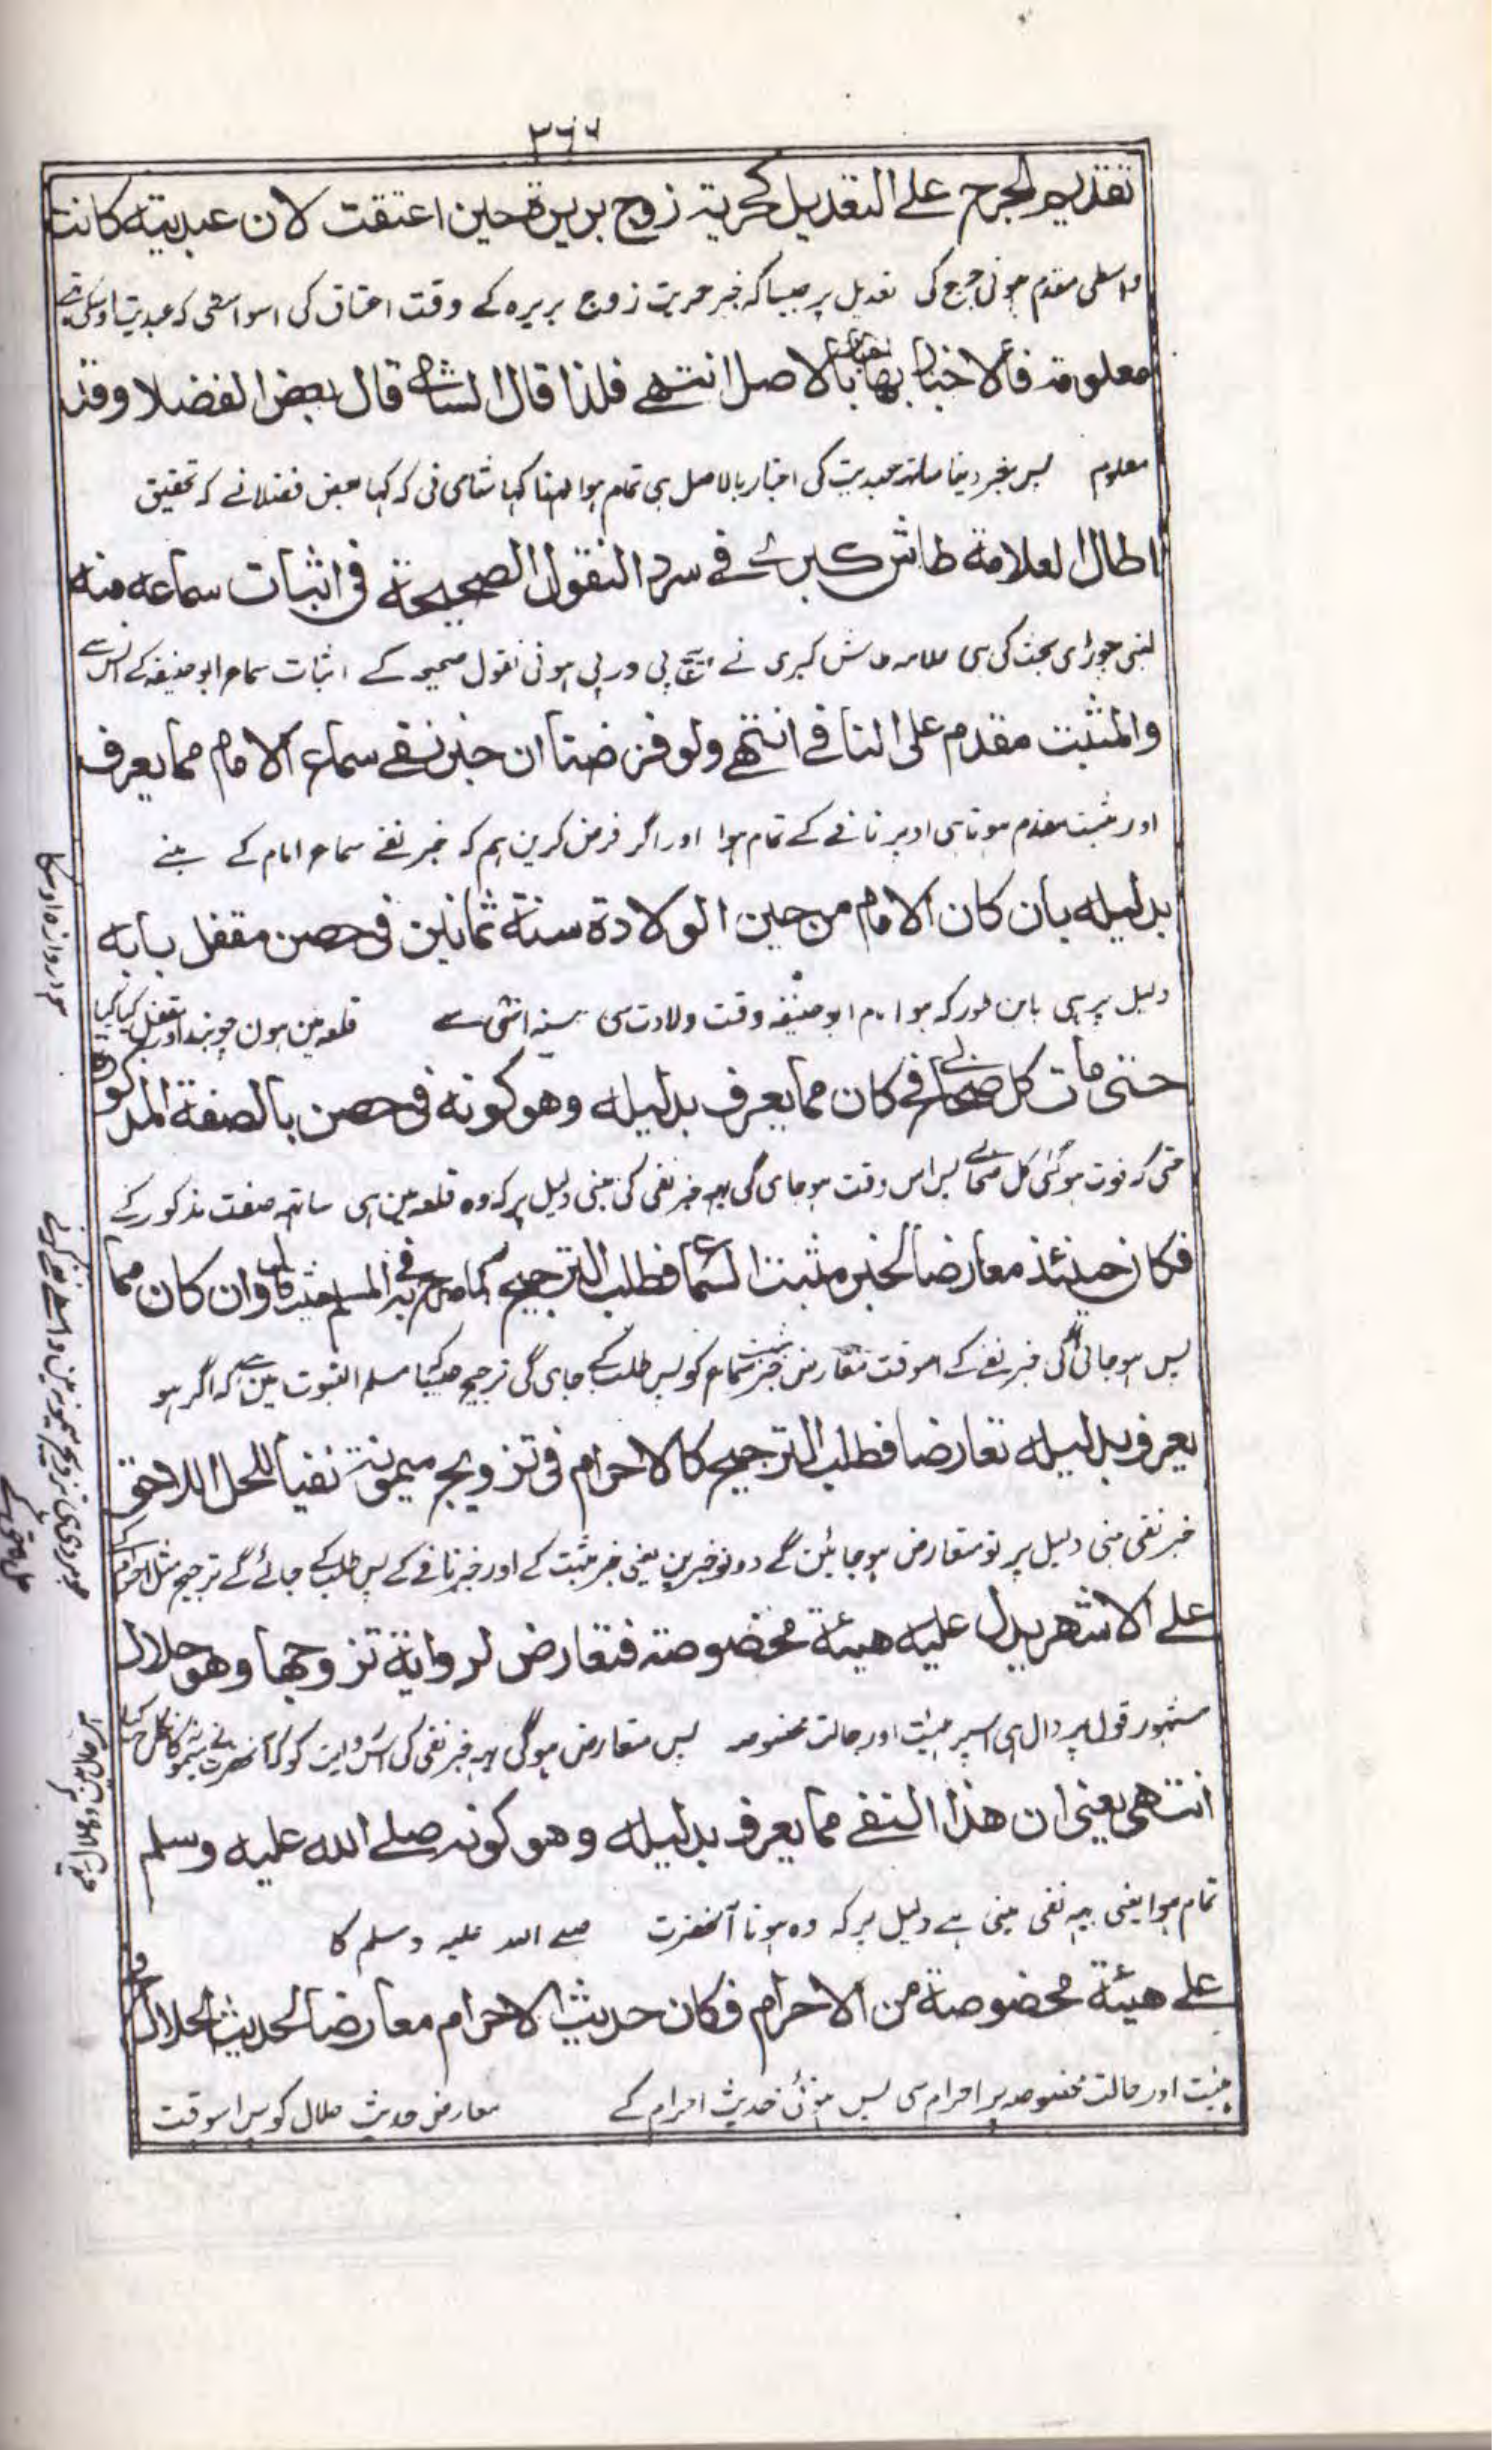 ٣٦٦
تقديم الجرح على التعديل كحرية زوج بريرة حين اعتقت لان عبديته كانت
واسطی مقدم ہونی جرح کی تعدیل پر جیسا کہ خبر حریت زوج بریرہ کے وقت اعتاق کی اسواسطی کہ عبدیت اوسکی تھی
معلومة فالاخبار بها بالاصل انتهى فلذا قال الشامى قال بعض الفضلا وقد
معلوم پس خبر دینا ساتہ عبدیت کی اخبار بالاصل ہی تمام ہوا لہذا کہا شامی نی کہ کہا بعض فضلا نے کہ تحقیق
اطال العلامة طاش كبرى في سرد النقول الصحيحة فى اثبات سماعه منه
لنبی چوڑای بحث کی ہی علامہ طاش کبری نے پی در پی ہونی نقول صحیحہ کے اثبات سماع ابو حنیفہ کے انس سے
والمثبت مقدم على النافي انتهى ولو فرضنا ان خبر نفي سماع الامام مما يعرف
اور مثبت مقدم ہوتا ہی اوپر نافے کے تمام ہوا اور اگر فرض کرین ہم کہ خبر نفے سماع امام کے بنے
بدليله بان كان الامام من حين الولادة سنة ثمانين فى حصن مقفل بابه
دلیل پر ہی باین طور کہ ہو امام ابو حنیفہ وقت ولادت سی سنہ اسّی سے قلعہ مین ہون جو بند اور مقفل کیا گیا
ہو دروازہ اوسکا
حتى مات كل صحابي كان مما يعرف بدليله وهو كونه فى حصن بالصفة المذكورة
حتی کہ فوت ہو گئی کل صحابے پس اس وقت ہو جای گی یہہ خبر نفی کی مبنی دلیل پر کہ وہ قلعہ مین ہی ساتہہ صفت مذکور کے
فكان حينئذ معارضا لخبر مثبت السماع فطلب الترجيح كما صرح به في المسلم حيث قال وان كان مما
پس ہو جائی گی خبر نفے کے اسوقت متعارض خبر مثبت سماع کو پس طلب کے جای گی ترجیح جیسا مسلم الثبوت مین ہے کہ اگر ہو
يعرف بدليله تعارضا فطلب الترجيح كالاحرام فى تزويج ميمونة نفيا للحل اللاحق
خبر نفی مبنی دلیل پر تو متعارض ہو جائین گے دونو خبرین یعنی خبر مثبت کے اور خبر نافے کے پس طلب کے جائے گے ترجیح مثل احرام کے
على الاشهر يدل عليه هيئة مخصوصة فتعارض لرواية تزوجها وهو حلال
مشہور قول پر دال ہی اسپر ہیئت اور حالت مخصوصہ پس متعارض ہوگی یہہ خبر نفی کی اس روایت کو کہ آنحضرت نے میمونہ سے نکاح کیا
انتهى يعنى ان هذا النفي مما يعرف بدليله وهو كونه صلى الله عليه وسلم
تمام ہوا یعنی یہہ نفی مبنی ہے دلیل پر کہ وہ ہونا آنحضرت صلے اللہ علیہ وسلم کا
على هيئة مخصوصة من الاحرام فكان حديث الاحرام معارضا لحديث الحلال
ہیئت اور حالت مخصوصہ پر احرام سی پس ہوئی حدیث احرام کے معارض حدیث حلال کو پس اسوقت